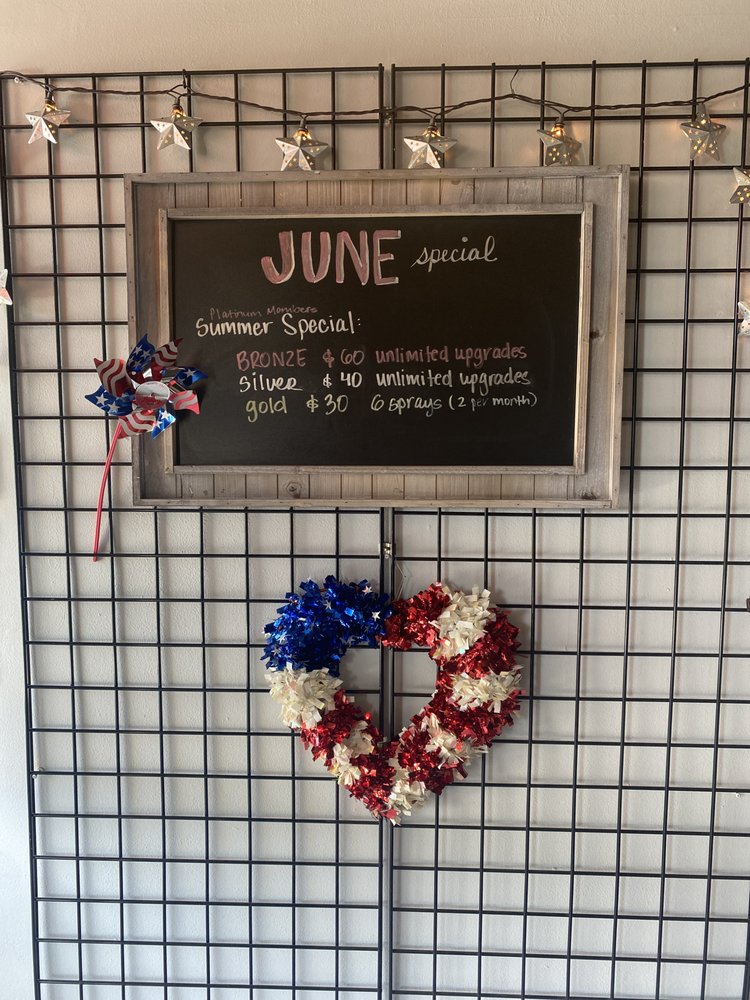 JUNE special
Platinum Members
Summer Special:
BRONZE $60 unlimited upgrades
Silver $40 unlimited upgrades
gold $30 6 sprays (2 per month)